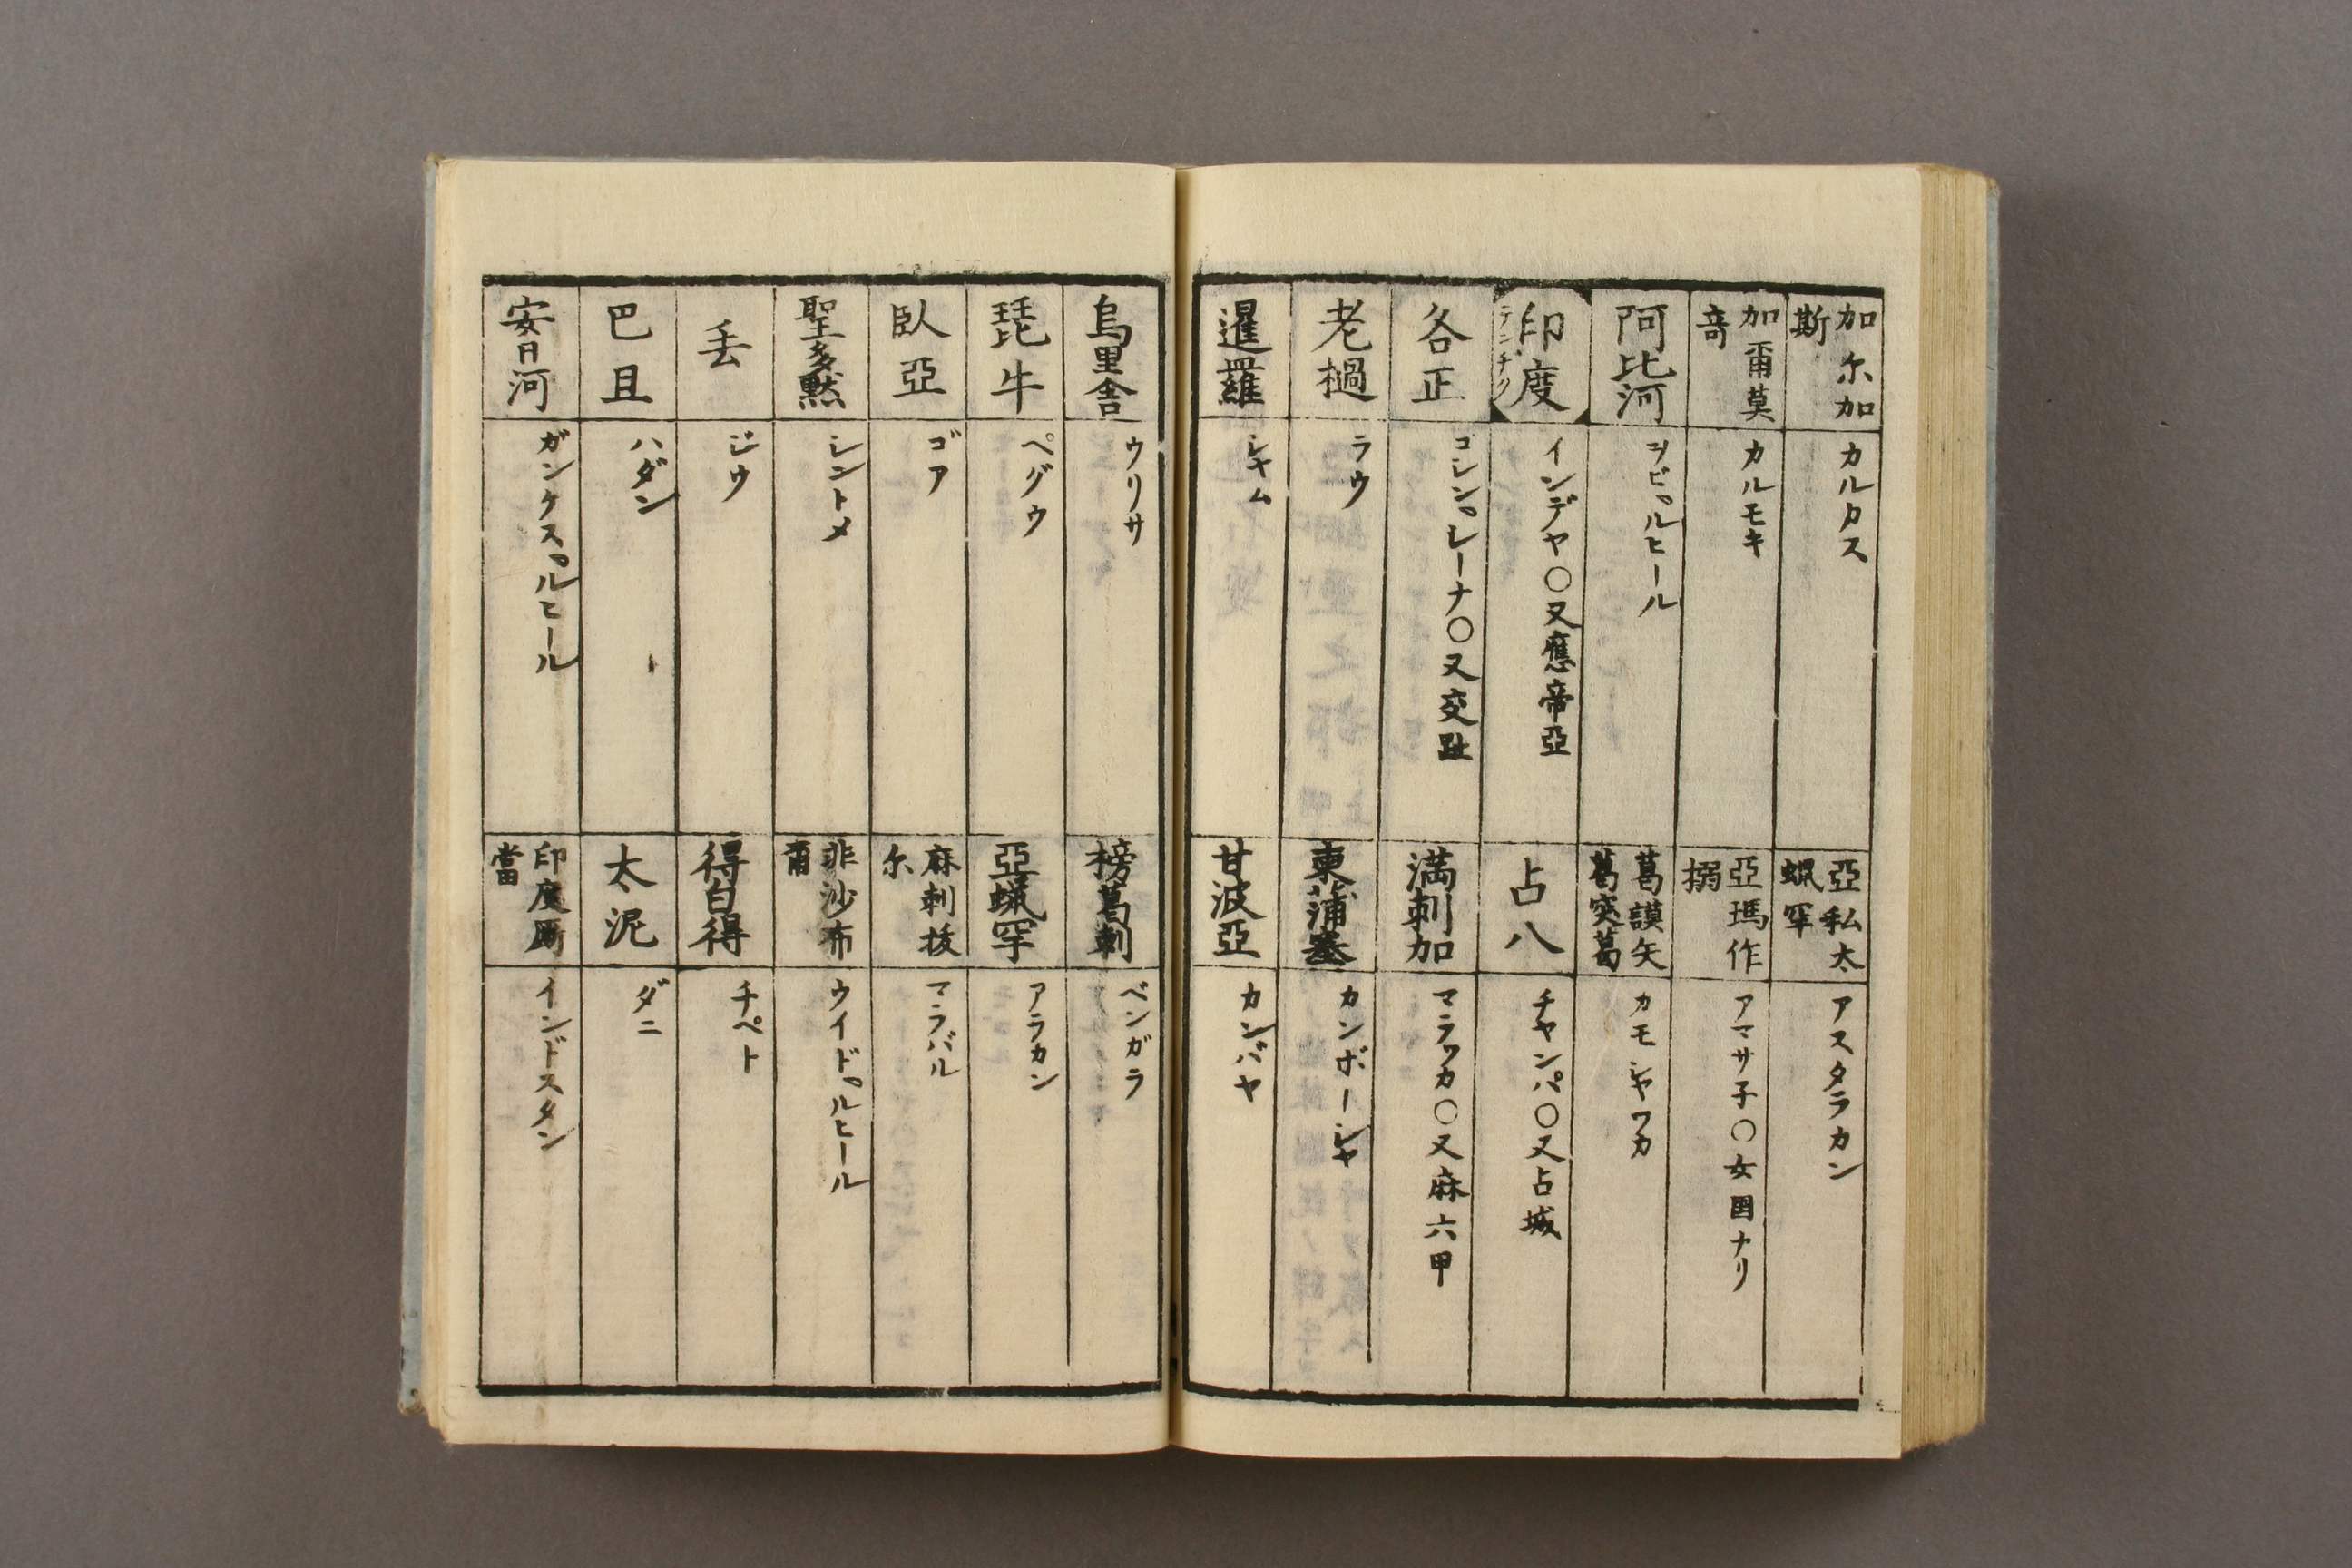 加尓加斯
カルカス
亞私太蝋罕
アスタラカン
加爾莫竒
カルモキ
亞瑪作搦
アマサ子○女国ナリ
阿比河
ヲビ゚ルヒール
葛謨矢葛突葛
カモシヤツカ
印度
テンヂク
インデヤ○又應帝亞
占八
チヤンパ○又占城
各正
コレン゚レーナ○又交趾
満刺加
マラツカ○又麻六甲
老檛
ラウ
東蒲塞
カンボーシヤ
暹羅
シヤム
甘波亞
カンバヤ
烏里舎
ウリサ
榜葛刺
ベンガラ
琵牛
ペグウ
亞蝋罕
アラカン
臥亞
ゴア
麻刺抜尓
マラバル
聖多黙
シントメ
非沙布爾
ウイド゚ルヒール
丢
ジウ
得白得
チペト
巴且
ハダン
太泥
ダニ
安日河
ガンケス゚ルヒール
印度厮當
インドスタン